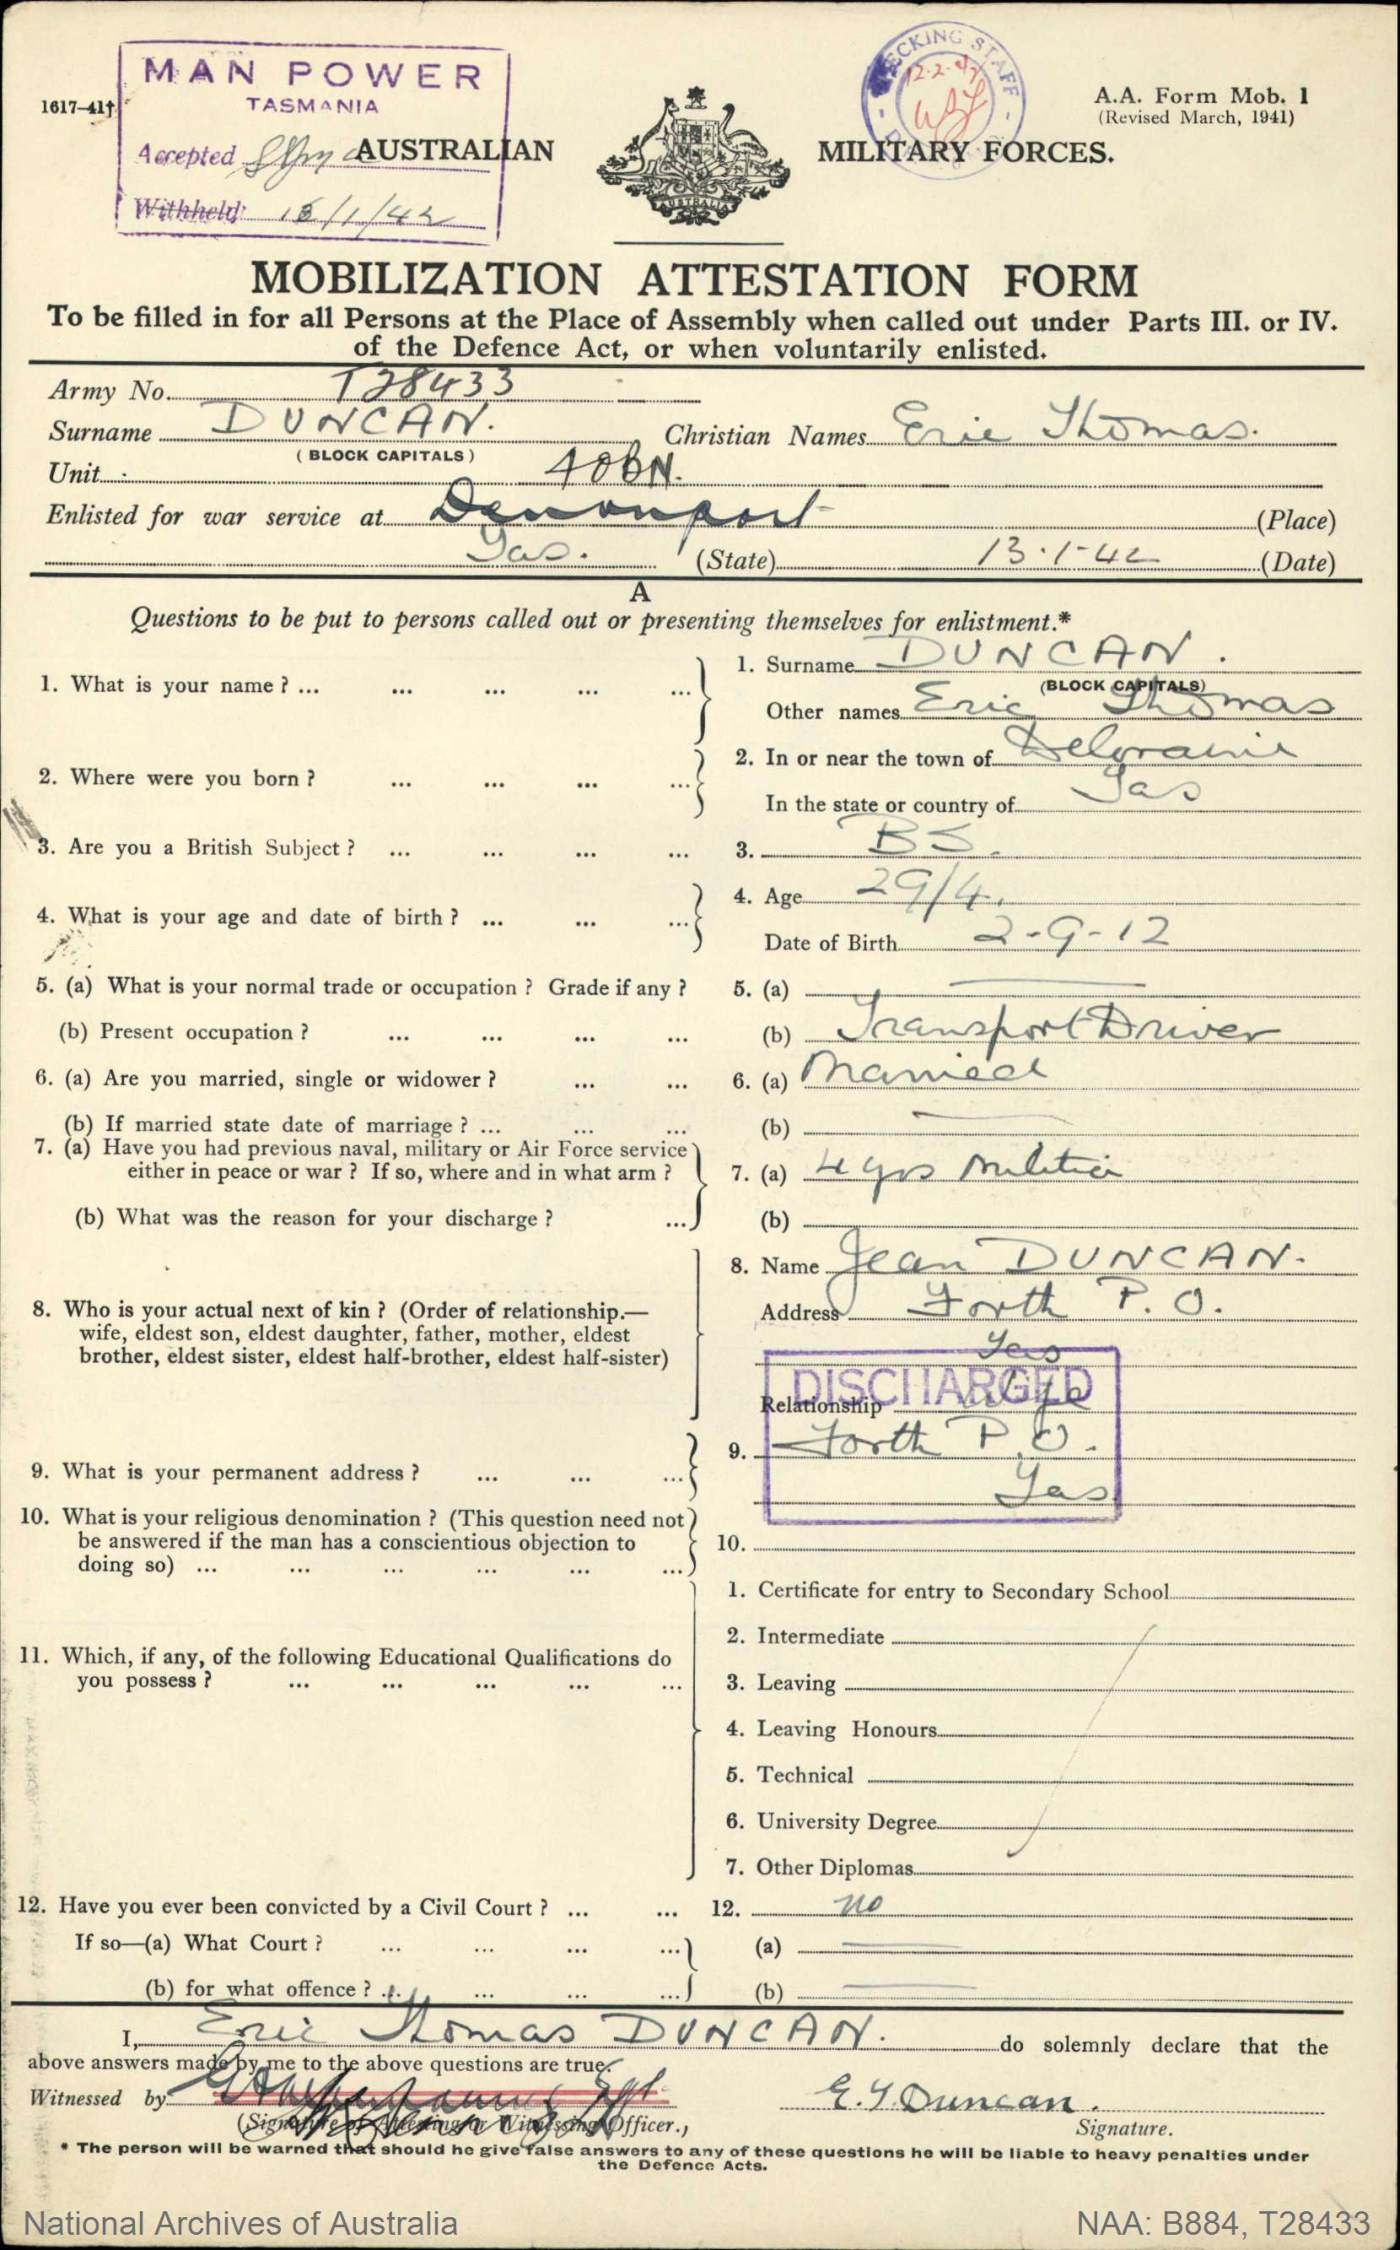 MAN POWER
TASMANIA
1617—41
Accepted
Withheld 15/1/42
CHECKING STAFF
12.2.47
A.A. Form Mob. 1
(Revised March, 1941)
AUSTRALIAN MILITARY FORCES.
AUSTRALIA
MOBILIZATION ATTESTATION FORM
To be filled in for all Persons at the Place of Assembly when called out under Parts III. or IV.
of the Defence Act, or when voluntarily enlisted.
Army No. T28433
Surname DUNCAN. Christian Names Eric Thomas.
(BLOCK CAPITALS)
Unit 40BN.
Enlisted for war service at Devonport (Place)
Tas. (State) 13.1-42 (Date)
A
Questions to be put to persons called out or presenting themselves for enlistment.*
1. What is your name? ... ... ... ... ...
1. Surname DUNCAN.
(BLOCK CAPITALS)
Other names Eric Thomas
2. Where were you born? ... ... ... ...
2. In or near the town of Deloraine
In the state or country of Tas
3. Are you a British Subject? ... ... ... ...
3. BS.
4. What is your age and date of birth? ... ... ...
4. Age 29/4.
Date of Birth 2-9-12
5. (a) What is your normal trade or occupation? Grade if any?
5. (a) —
(b) Present occupation? ... ... ... ...
(b) Transport Driver
6. (a) Are you married, single or widower? ... ...
6. (a) Married
(b) If married state date of marriage? ... ... ...
(b) —
7. (a) Have you had previous naval, military or Air Force service
either in peace or war? If so, where and in what arm?
7. (a) 4 yrs Militia
(b) What was the reason for your discharge? ...
(b)
8. Who is your actual next of kin? (Order of relationship.—
wife, eldest son, eldest daughter, father, mother, eldest
brother, eldest sister, eldest half-brother, eldest half-sister)
8. Name Jean DUNCAN.
Address Forth P.O.
Tas
DISCHARGED
Relationship Wife
9. What is your permanent address? ... ... ...
9. Forth P.O.
Tas
10. What is your religious denomination? (This question need not
be answered if the man has a conscientious objection to
doing so) ... ... ... ... ... ...
10.
11. Which, if any, of the following Educational Qualifications do
you possess? ... ... ... ... ...
1. Certificate for entry to Secondary School
2. Intermediate
3. Leaving
4. Leaving Honours
5. Technical
6. University Degree
7. Other Diplomas
12. Have you ever been convicted by a Civil Court? ... ...
12. no
If so—(a) What Court? ... ... ... ...
(a) —
(b) for what offence? ... ... ... ...
(b) —
I, Eric Thomas DUNCAN. do solemnly declare that the
above answers made by me to the above questions are true.
Witnessed by
E.T. Duncan.
(Signature of Attesting or Witnessing Officer.) Signature.
* The person will be warned that should he give false answers to any of these questions he will be liable to heavy penalties under
the Defence Acts.
National Archives of Australia NAA: B884, T28433